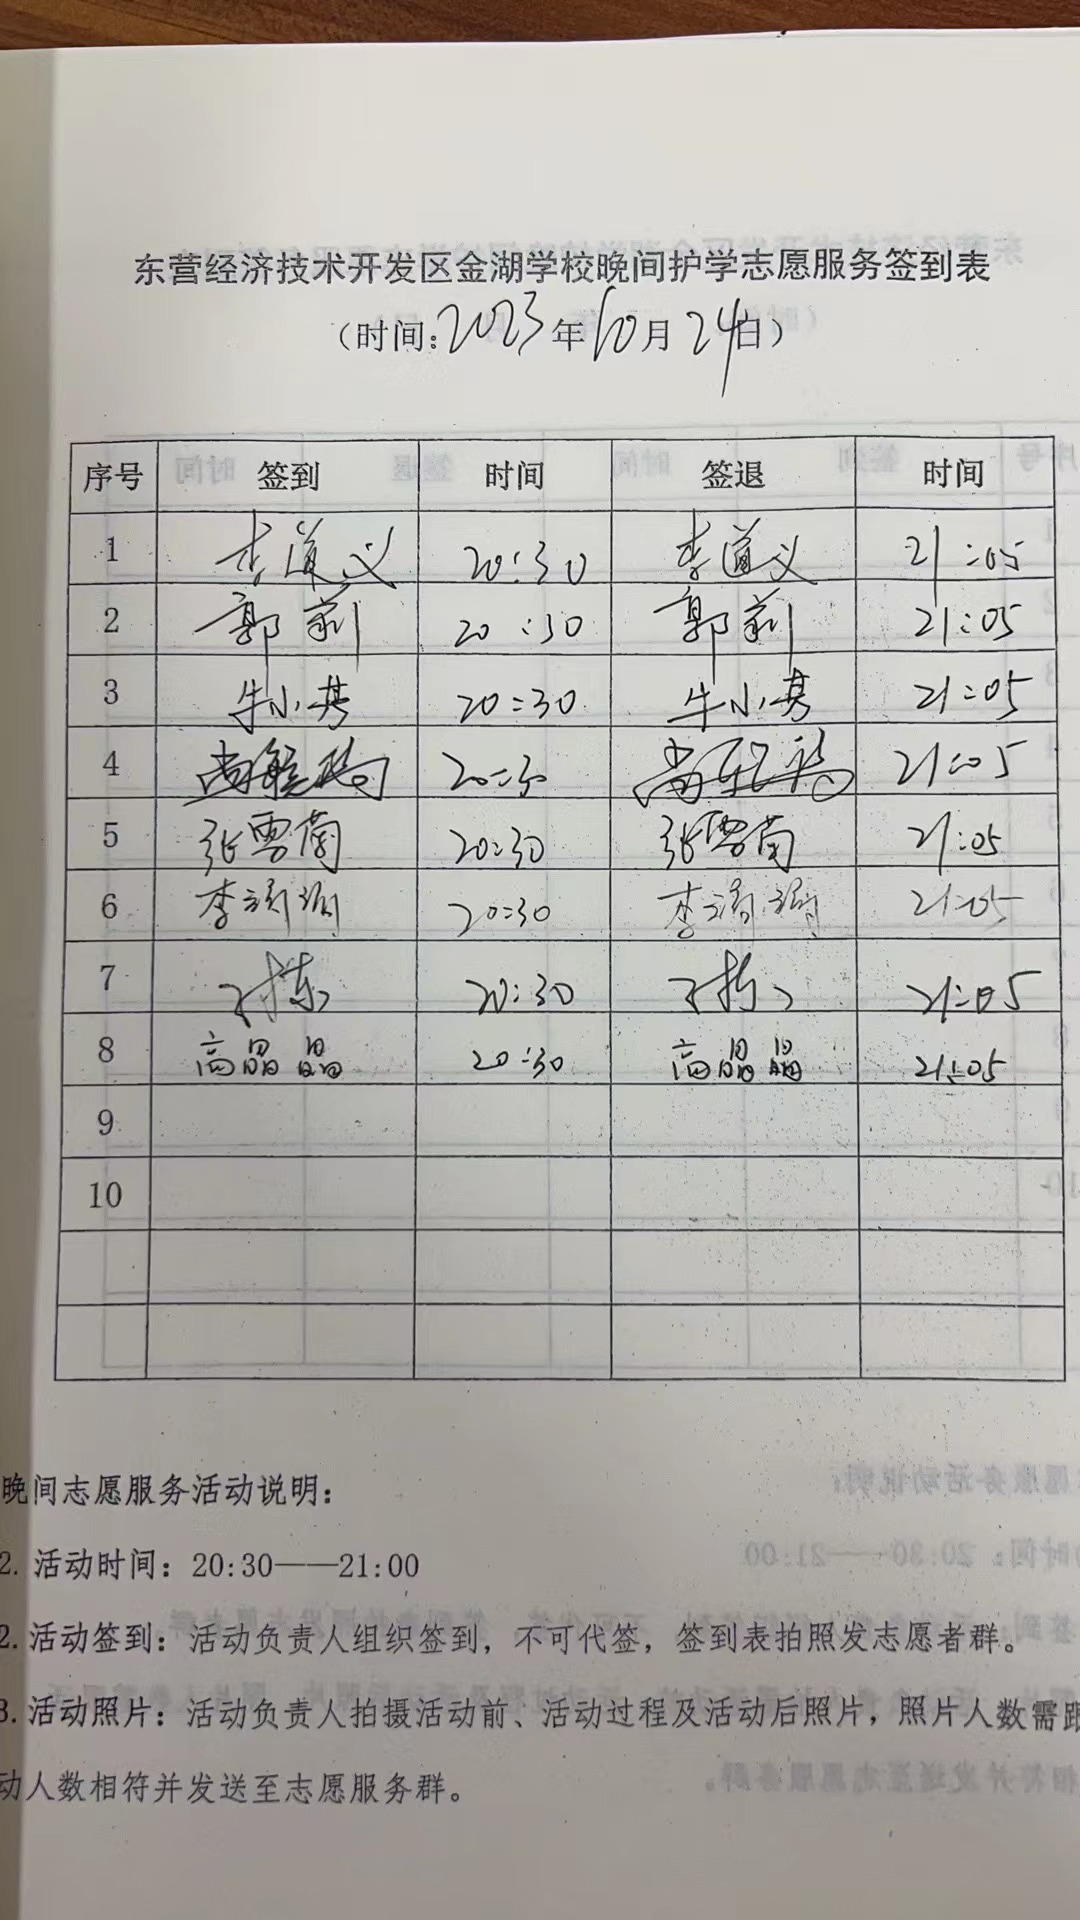 东营经济技术开发区金湖学校晚间护学志愿服务签到表
（时间：2023年10月24日）
序号 签到 时间 签退 时间
1 李道义 20:30 李道义 21:05
2 郭莉 20:30 郭莉 21:05
3 牛小芳 20:30 牛小芳 21:05
4 20:30 21:05
5 张雪菊 20:30 张雪菊 21:05
6 李 20:30 李 21:05
7 20:30 21:05
8 高晶晶 20:30 高晶晶 21:05
9
10
晚间志愿服务活动说明：
2. 活动时间：20:30——21:00
2. 活动签到：活动负责人组织签到，不可代签，签到表拍照发志愿者群。
3. 活动照片：活动负责人拍摄活动前、活动过程及活动后照片，照片人数需跟
动人数相符并发送至志愿服务群。